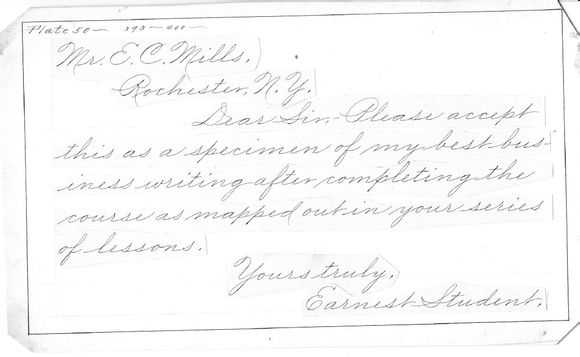 Plate 50—
Mr. E. C. Mills,
Rochester, N. Y.
Dear Sir,- Please accept
this as a specimen of my best bus-
iness writing after completing the
course as mapped out in your series
of lessons.
Yours truly,
Earnest Student.